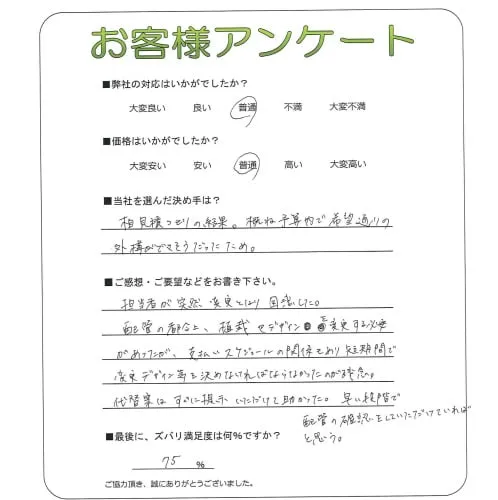 お客様アンケート
■弊社の対応はいかがでしたか？
大変良い 良い 普通 不満 大変不満
■価格はいかがでしたか？
大変安い 安い 普通 高い 大変高い
■当社を選んだ決め手は？
相見積つもりの結果。概ね予算内で希望通りの
外構ができそうだったため。
■ご感想・ご要望などをお書き下さい。
担当者が突然変更となり困惑した。
配管の都合上、植栽やデザインを変更する必要
があったが、支払いスケジュールの関係もあり短期間で
変更デザイン等を決めなければならなかったのが残念。
代替案はすぐに提示いただけて助かった。早い段階で
配管の確認をしていただけていれば
と思う。
■最後に、ズバリ満足度は何％ですか？
75 %
ご協力頂き、誠にありがとうございました。